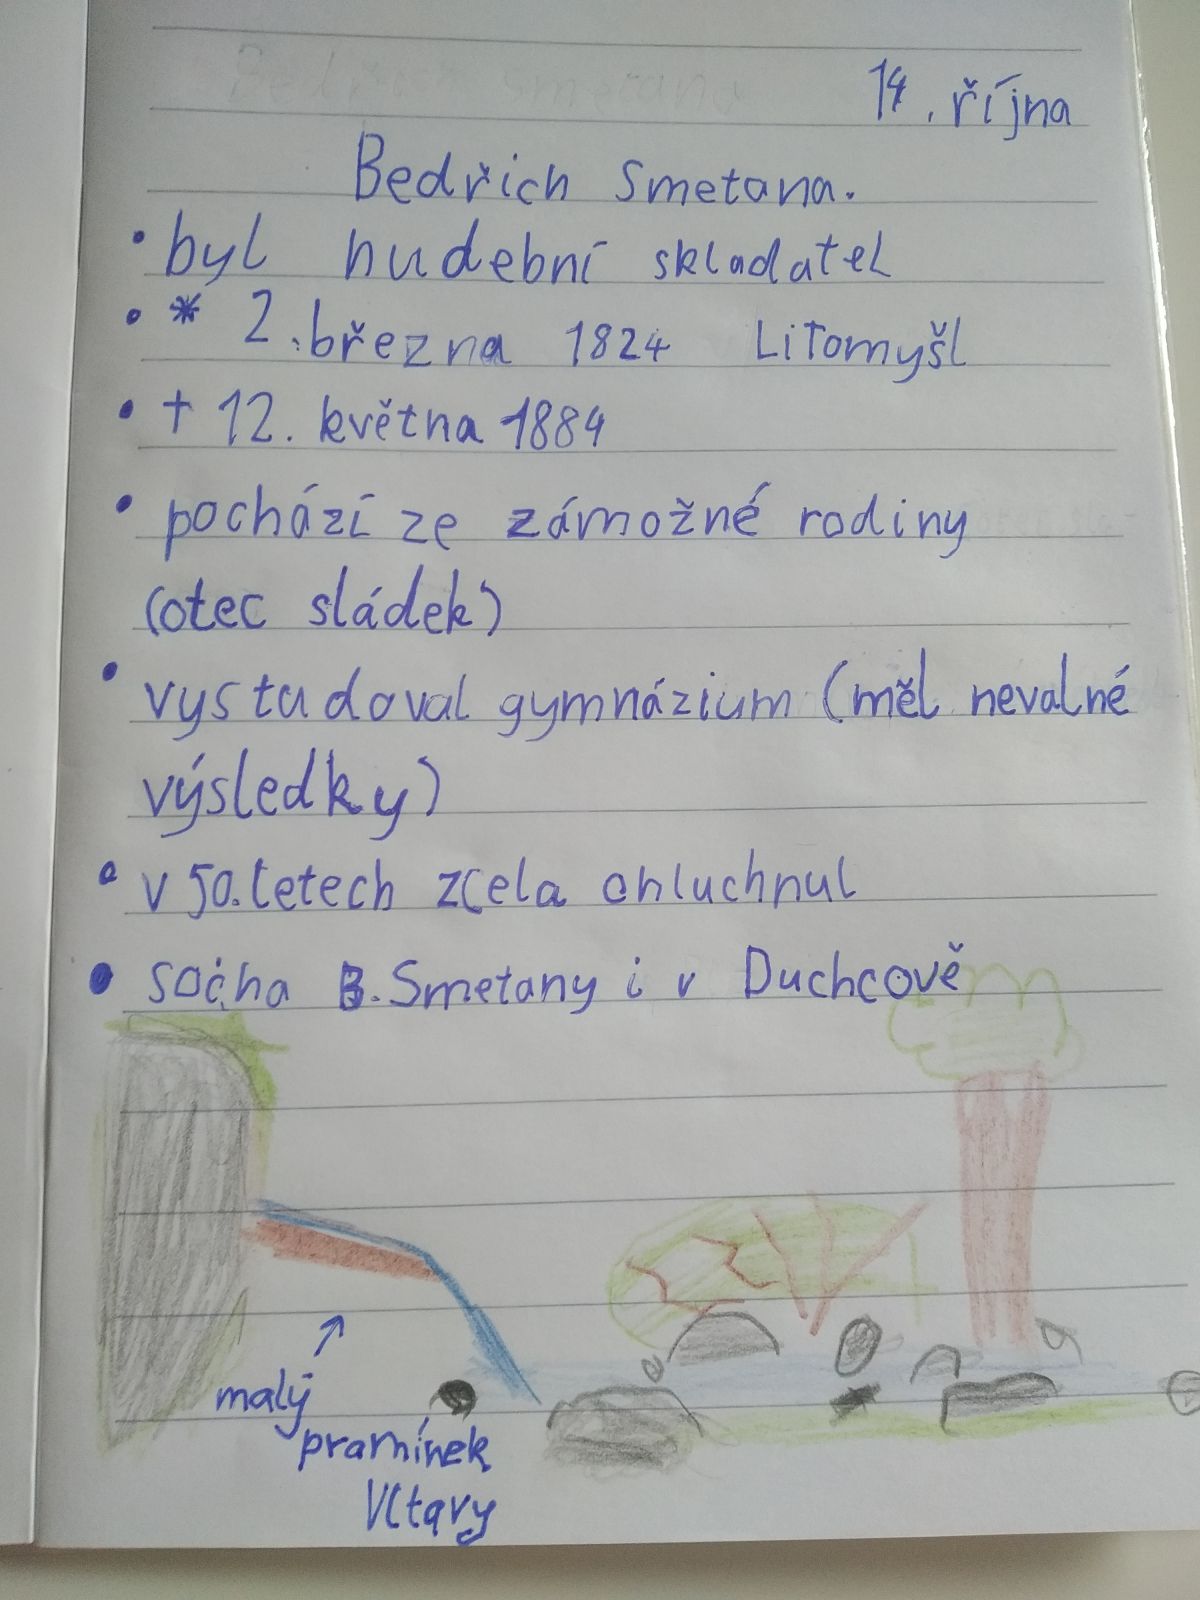 14. října
Bedřich Smetana.
• byl hudební skladatel
• * 2. března 1824 Litomyšl
• † 12. května 1884
• pochází ze zámožné rodiny
(otec sládek)
• vystudoval gymnázium (měl nevalné
výsledky)
• v 50. letech zcela ohluchnul
• socha B. Smetany i v Duchcově
malý
pramínek
Vltavy